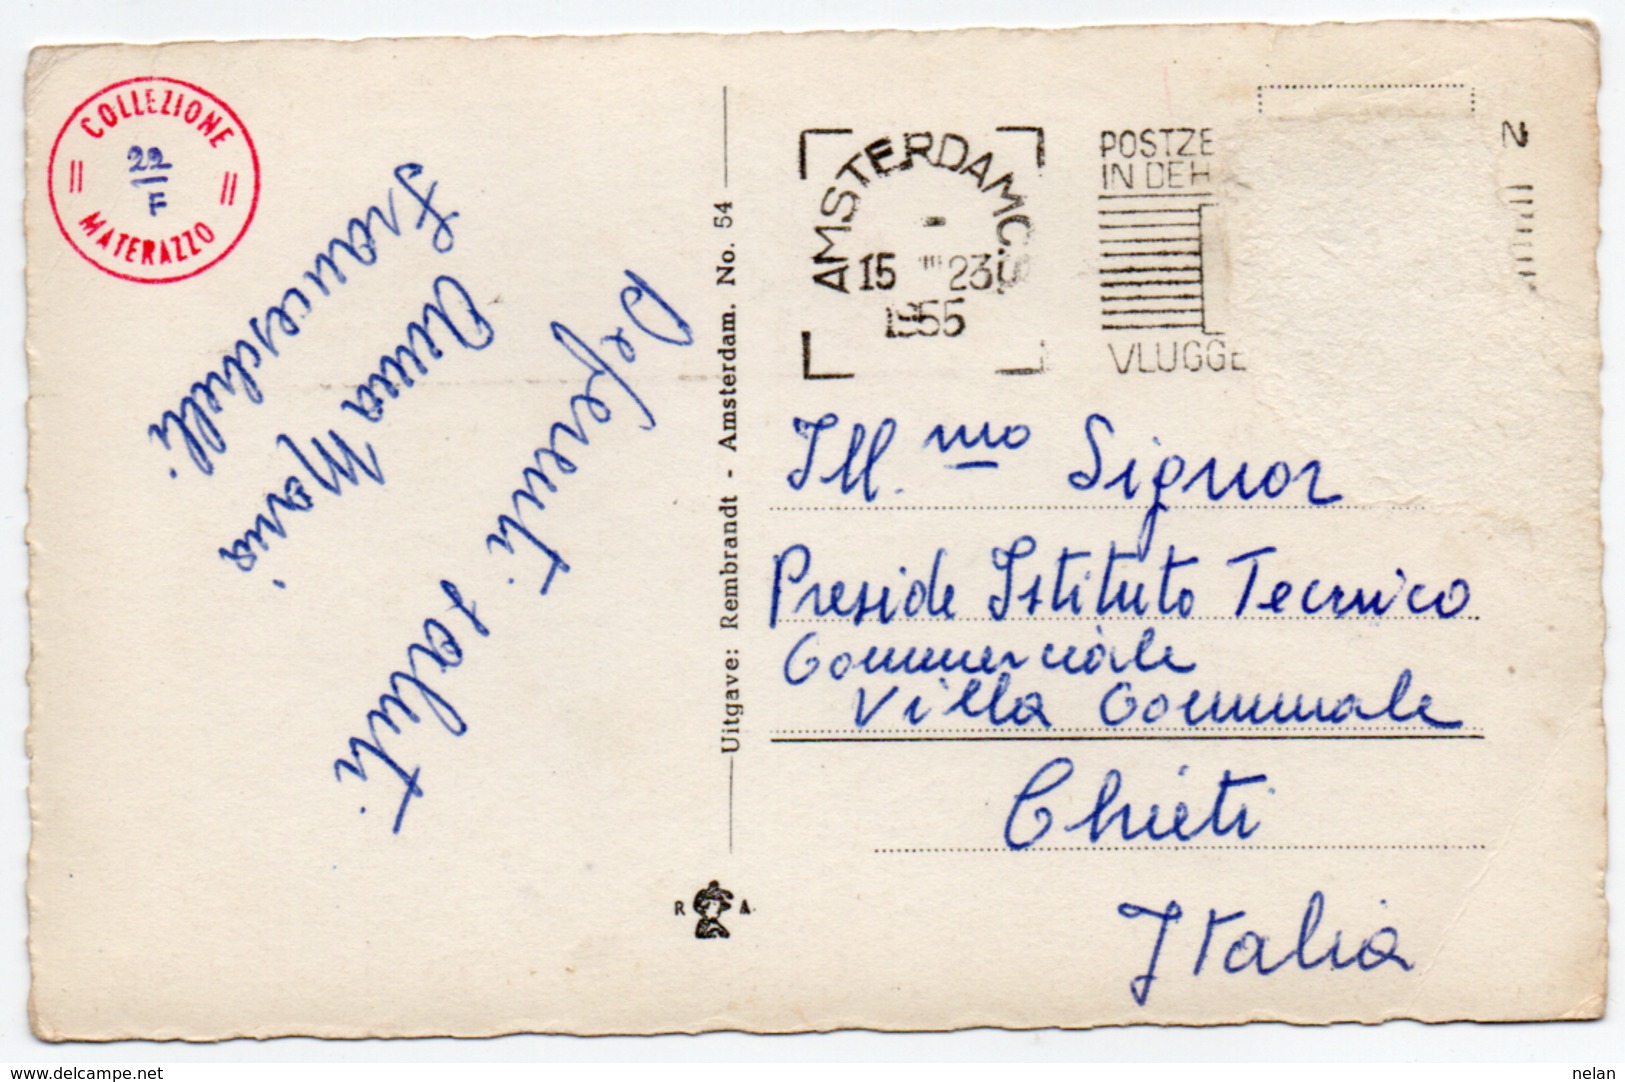 COLLEZIONE
22
F
MATERAZZO
Deferenti saluti
Anna Maria
Franceschelli
Uitgave: Rembrandt - Amsterdam. No. 54
R A.
AMSTERDAM C.S
15 III 23
1955
POSTZE
IN DE H
VLUGGE
2
Ill.mo Signor
Preside Istituto Tecnico
Commerciale
Villa Comunale
Chieti
Italia
www.delcampe.net
nelan